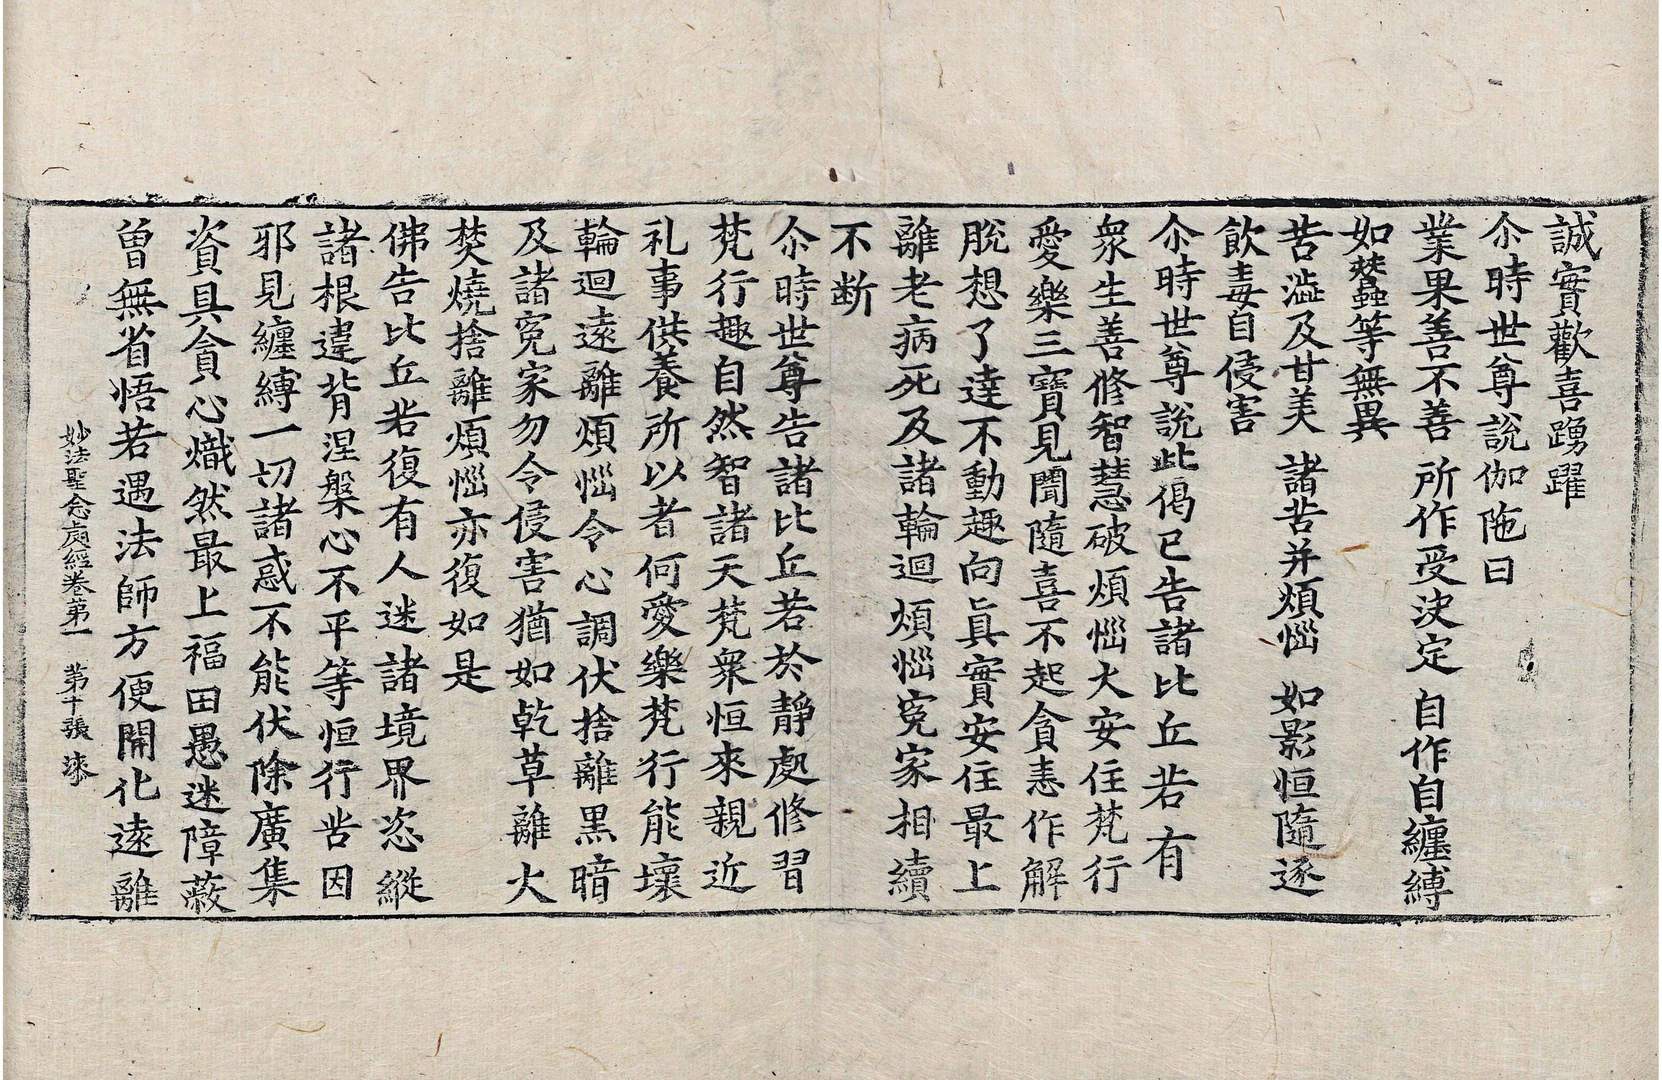 誠實歡喜踴躍
尒時世尊說伽陁曰
業果善不善 所作受決定 自作自纏縛
如蠶等無異
苦澁及甘美 諸苦并煩惱 如影恒隨逐
飲毒自侵害
尒時世尊說此偈已告諸比丘若有
衆生善修智慧破煩惱大安住梵行
愛樂三寶見聞隨喜不起貪恚作解
脫想了達不動趣向眞實安住最上
離老病死及諸輪迴煩惱寃家相續
不断
尒時世尊告諸比丘若於靜處修習
梵行趣自然智諸天梵衆恒來親近
礼事供養所以者何愛樂梵行能壞
輪迴遠離煩惱令心調伏捨離黑暗
及諸寃家勿令侵害猶如乾草離火
焚燒捨離煩惱亦復如是
佛告比丘若復有人迷諸境界恣縱
諸根違背涅槃心不平等恒行苦因
邪見纏縛一切諸惑不能伏除廣集
資具貪心熾然最上福田愚迷障蔽
曾無省悟若遇法師方便開化遠離
妙法聖念處經卷第一 第十張 漆